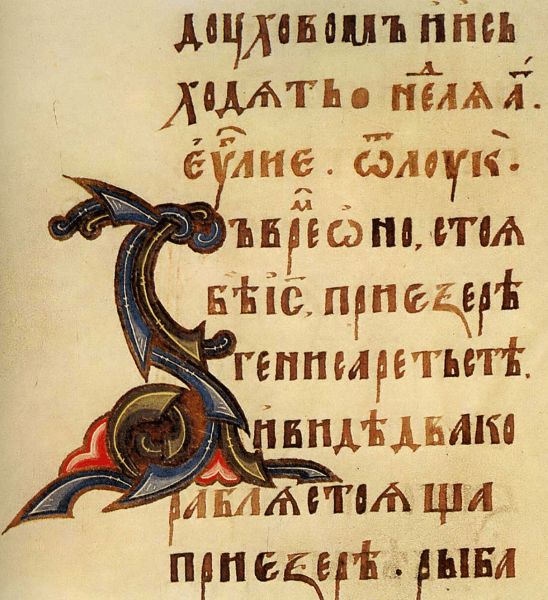 доуховомъ и нись
ходѧть • неⷣлѧ а҃.
еѵ҃лиє. ѿ лоук҃.
Въ вреⷨѡно, стоѧ
бѣ іс҃, приезерѣ
генисаретьстѣ.
и видѣ два ко
раблѧ стоѧща
приезерѣ. рыба